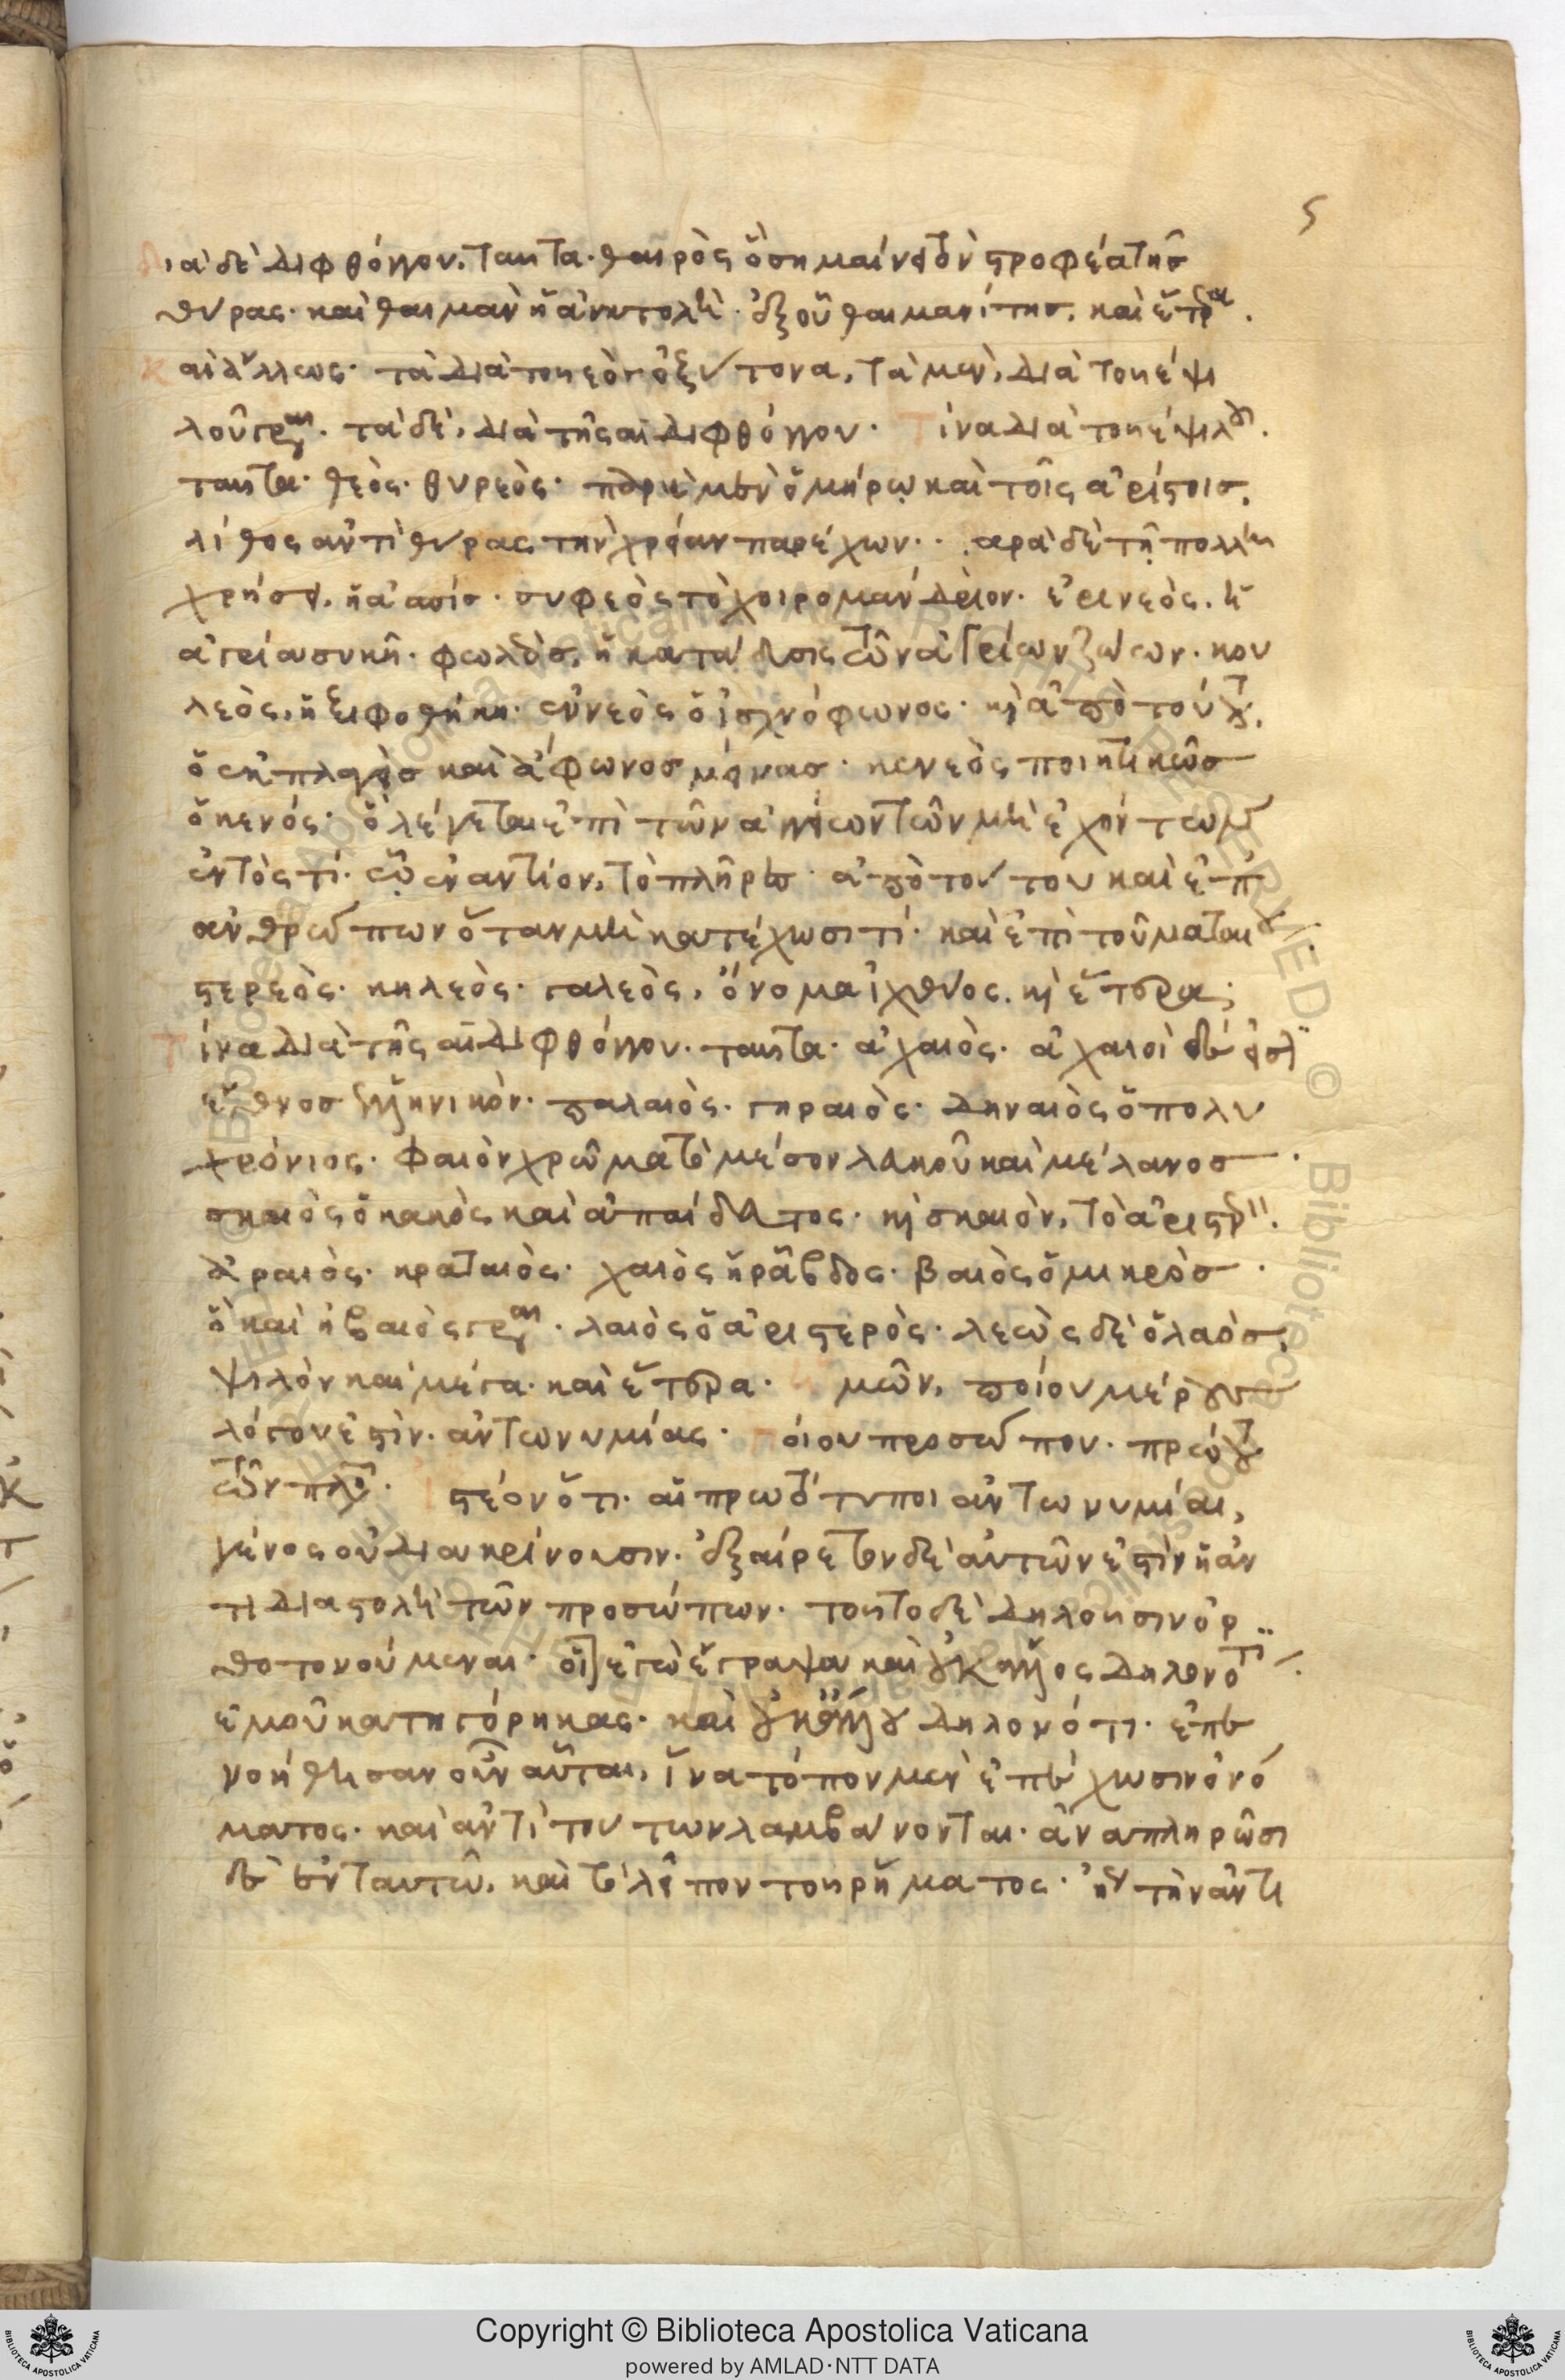 5
Διὰ δὲ διφθόγγου, ταῦτα· θαιρὸς ὁ σημαίνει τὸν στροφέα τῆς
θύρας· καὶ θαιμὰν ἡ ἀνατολὴ· ἐξ οὗ θαιμανίτης, καὶ ἕτερα.
Καὶ ἄλλως· τὰ διὰ τοῦ εος ὀξύτονα, τὰ μὲν, διὰ τοῦ ἐψι
λοῦ γράφεται· τὰ δὲ, διὰ τῆς αι διφθόγγου· Τίνα διὰ τοῦ ἐψιλοῦ.
ταῦτα· θεὸς· θυρεὸς· παρὰ μὲν ὁμήρῳ καὶ τοῖς ἀρίστοις,
λίθος ἀντὶ θύρας τὴν χρείαν παρέχων· παρὰ δὲ τῇ πολλῇ
χρήσει, ἡ ἀσπίς· συφεὸς τὸ χοιρομάνδριον· ἐρινεὸς, ἡ
ἀγρία συκῆ· φωλεὸς, ἡ κατάδυσις τῶν ἀγρίων ζώων· κου
λεὸς, ἡ ξιφοθήκη· ἐνεὸς ὁ ἰσχνόφωνος· καὶ ἀπὸ τούτου,
ὁ ἐκπλαγεὶς καὶ ἄφωνος μείνας· κενεὸς ποιητικῶς
ὁ κενός· ὃ λέγεται ἐπὶ τῶν ἀγγείων τῶν μὴ ἐχόντων
ἐντός τι· ᾧ ἐναντίον, τὸ πλῆρες· ἀπὸ τούτου καὶ ἐπ
ἀνθρώπων ὅταν μὴ κατέχωσι τί· καὶ ἐπὶ τοῦ ματαίου
στερεὸς· κηλεὸς· γαλεὸς, ὄνομα ἰχθύος, καὶ ἕτερα;
Τίνα διὰ τῆς αι διφθόγγου· ταῦτα· ἀχαιὸς· ἀχαιοὶ δέ εἰσι
ἔθνος ἑλληνικὸν· παλαιὸς· γηραιὸς· δηναιὸς ὁ πολυ
χρόνιος· φαιὸν χρῶμα τὸ μέσον λευκοῦ καὶ μέλανος·
σκαιὸς ὁ κακὸς καὶ ἀπαίδευτος· καὶ σκαιὸν, τὸ ἀριστερόν.
ἀραιὸς· κραταιὸς· χαιὸς ἡ ῥάβδος· βαιὸς ὁ μικρὸς·
ὃ καὶ ἠβαιὸς γράφεται· λαιὸς ὁ ἀριστερὸς· λεὼς δὲ ὁ λαὸς,
ψιλὸν καὶ μέγα· καὶ ἕτερα· ἡμῶν, ποίου μέρους
λόγου ἐστίν· ἀντωνυμίας· ποίου προσώπου· πρώτου
τῶν πληθυντικῶν· Ἰστέον ὅτι αἱ πρωτότυποι ἀντωνυμίαι,
γένος οὐ διακρίνουσιν· ἐξαίρετον δὲ αὐτῶν ἐστὶν ἡ ἀν
τιδιαστολὴ τῶν προσώπων· τοῦτο δὲ δηλοῦσιν ὀρ
θοτονούμεναι· οἷον ἐγὼ ἔγραψα καὶ οὐκ ἄλλος δηλονότι
ἐμοῦ κατηγόρηκας· καὶ οὐκ ἄλλου δηλονότι· ἐπε
νοήθησαν οὖν αὗται, ἵνα τόπον μὲν ἐπέχωσιν ὀνό
ματος· καὶ ἀντὶ τούτων λαμβάνονται· ἀναπληρῶσι
δὲ ἐν ταυτῷ, καὶ τὸ λεῖπον τοῦ ῥήματος· ἤγουν τὴν ἀντι
Copyright © Biblioteca Apostolica Vaticana
powered by AMLAD·NTT DATA